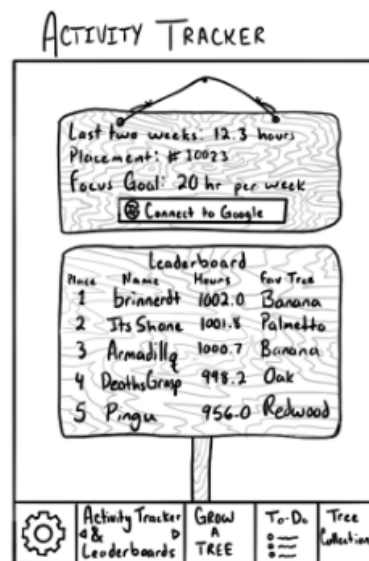 ACTIVITY TRACKER
Last two weeks: 12.3 hours
Placement: # 10023
Focus Goal: 20 hr per week
Connect to Google
Leaderboard
Place Name Hours Fav Tree
1 brinnerdt 1002.0 Banana
2 Its Shane 1001.8 Palmetto
3 Armadillq 1000.7 Banana
4 DeathsGrasp 998.2 Oak
5 Pingu 956.0 Redwood
Activity Tracker
&
Leaderboards
GROW
A
TREE
To-Do
Tree
Collection